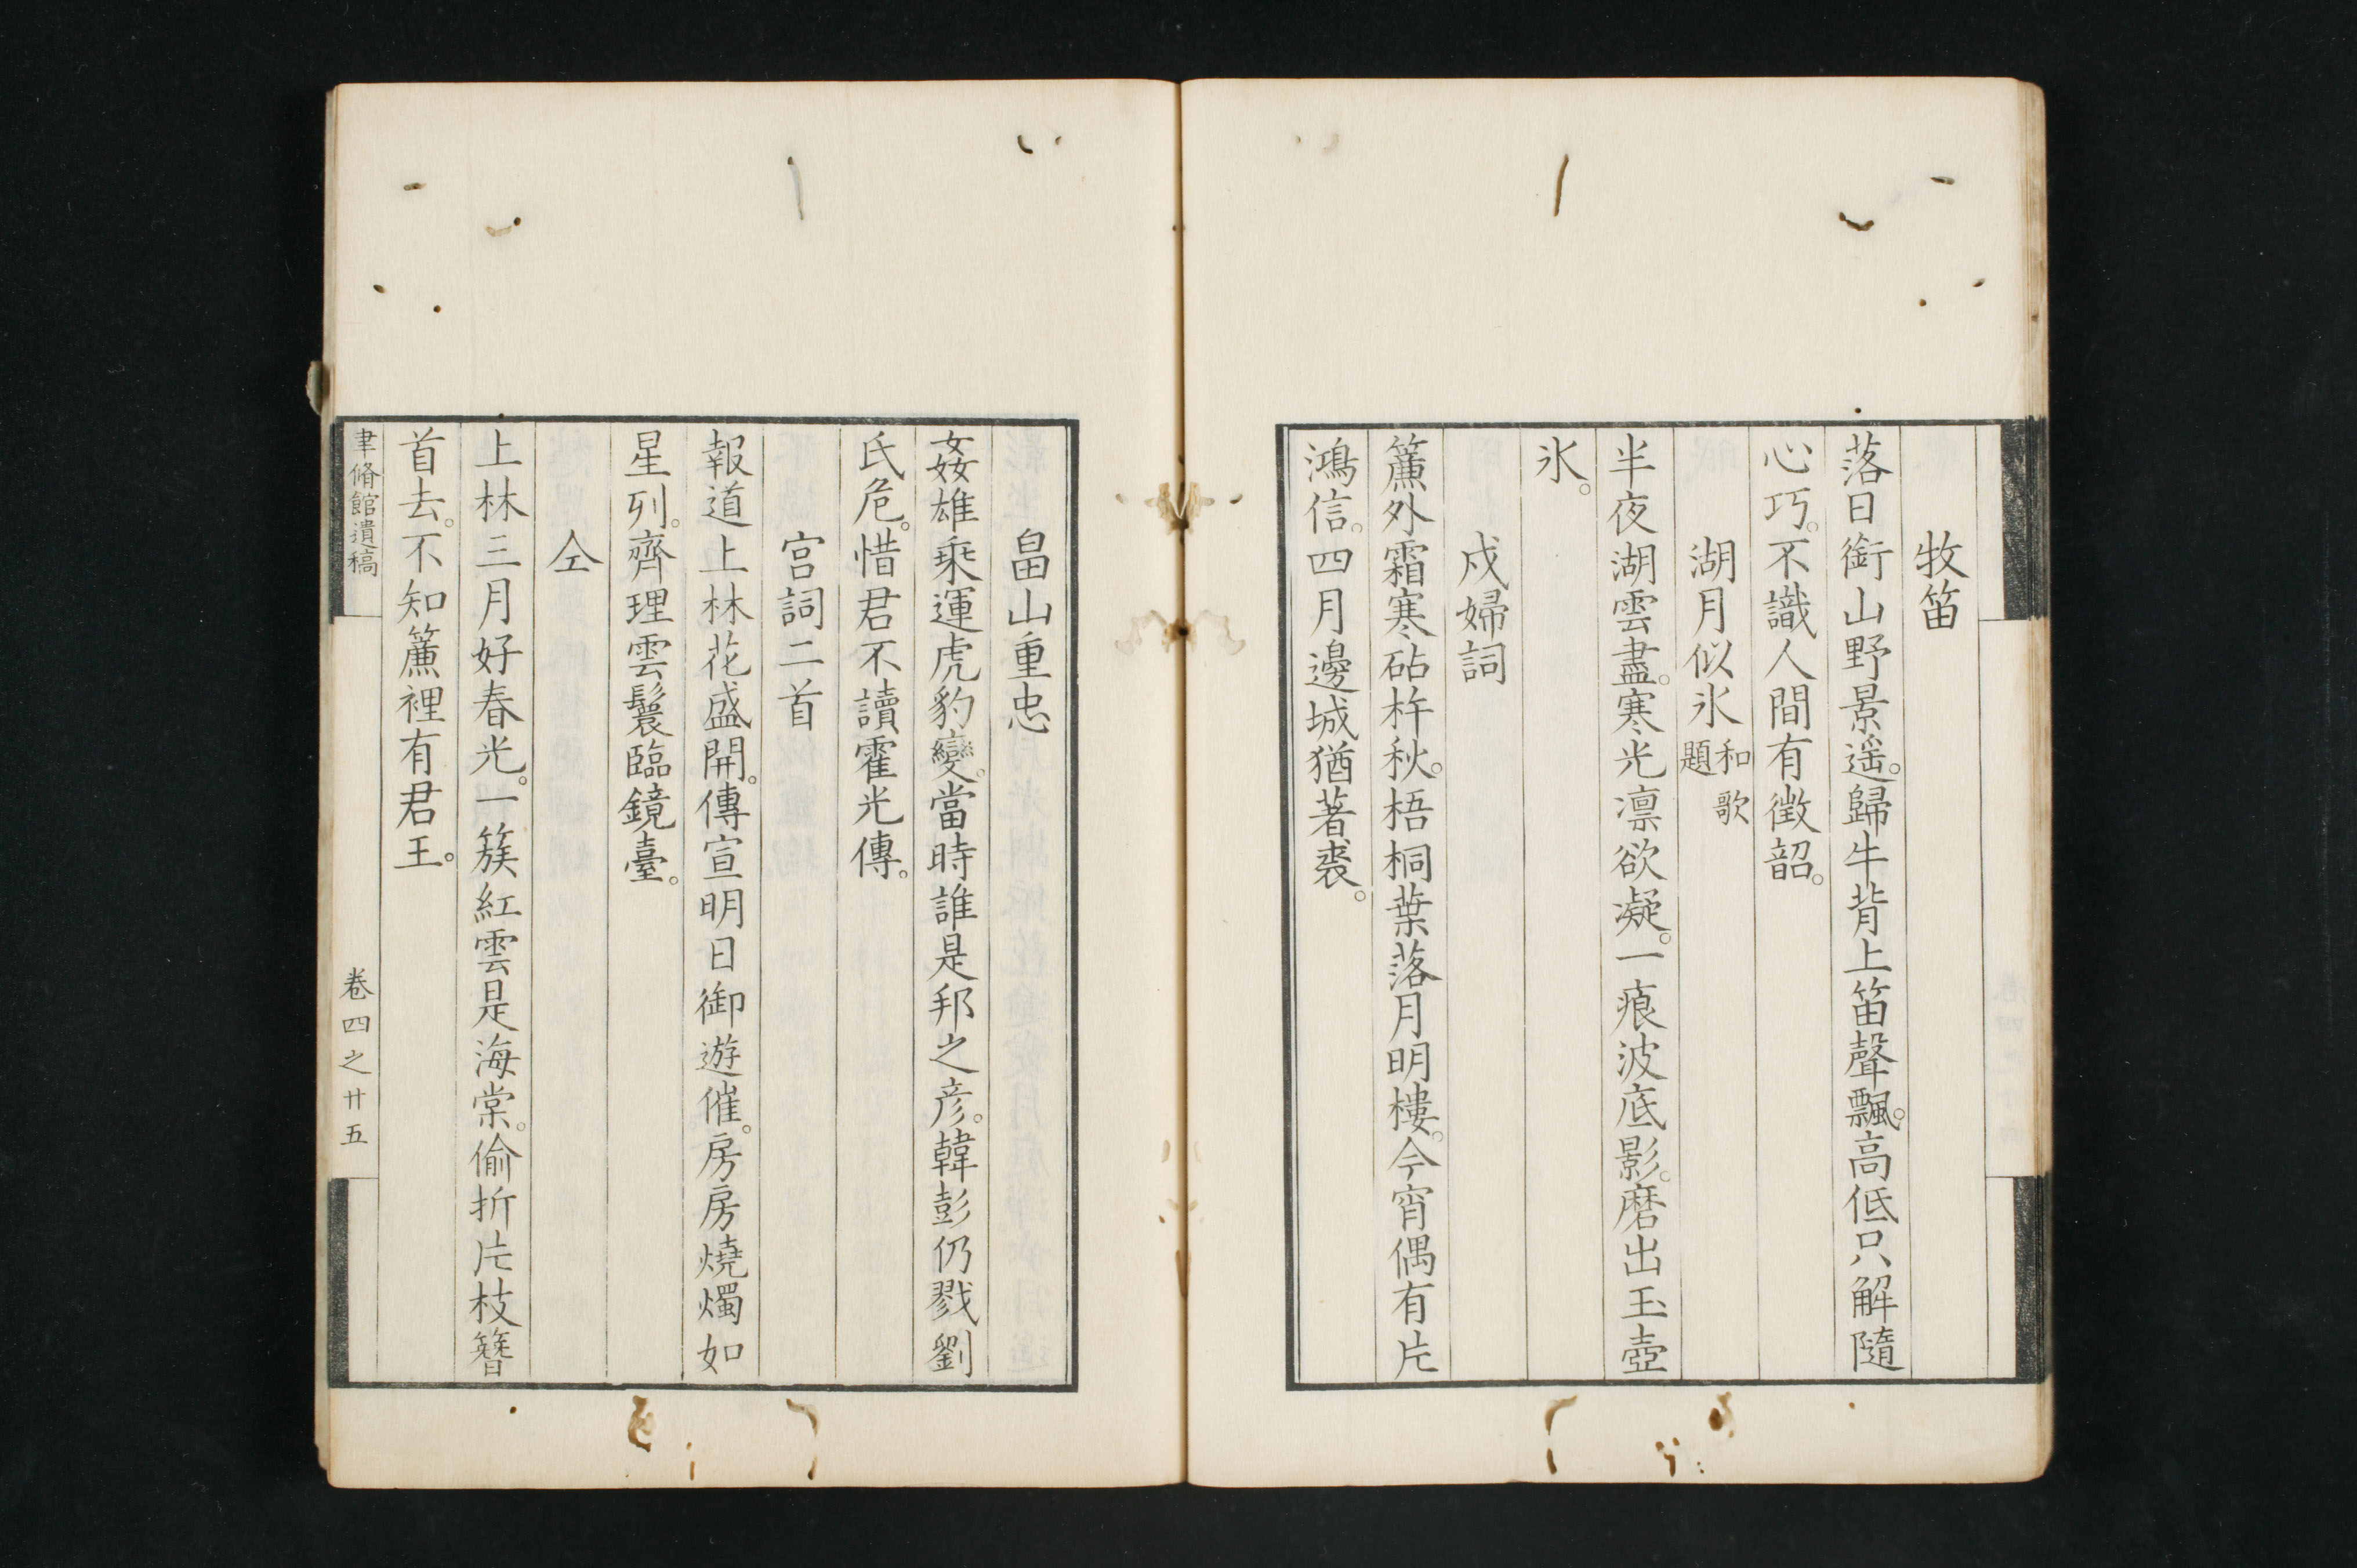 牧笛
落日銜山野景遥。歸牛背上笛聲飄。高低只解隨
心巧。不識人間有徴韶。
湖月似氷 和歌題
半夜湖雲盡。寒光凛欲凝。一痕波底影。磨出玉壺
氷。
戍婦詞
簾外霜寒砧杵秋。梧桐葉落月明樓。今宵偶有片
鴻信。四月邊城猶著裘。
畠山重忠
姦雄乘運虎豹變。當時誰是邦之彦。韓彭仍戮劉
氏危。惜君不讀霍光傳。
宮詞二首
報道上林花盛開。傳宣明日御遊催。房房燒燭如
星列。齊理雲鬟臨鏡臺。
仝
上林三月好春光。一簇紅雲是海棠。偷折片枝簪
首去。不知簾裡有君王。
聿脩館遺稿
卷四之廿五